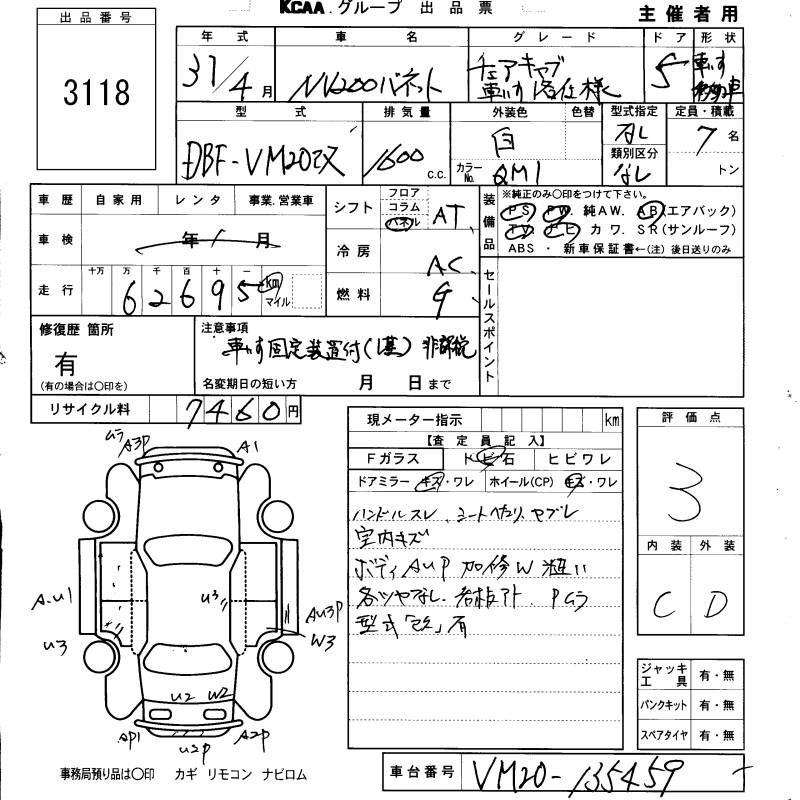 KCAA グループ 出品票
主催者用
出品番号
3118
年式 車名 グレード ドア 形状
31/4月 NV200バネット チェアキャブ 5 車いす
車いす 仕様 移動車
型式 排気量 外装色 色替 型式指定 定員・積載
DBF-VM20改 1600 c.c. 白 なし 7名
カラーNo. QM1 類別区分 なし トン
車歴 自家用 レンタ 事業.営業車
車検 年 月
走行 十万 万 千 百 十 一
62695 km マイル
シフト フロア コラム パネル AT
冷房 AC
燃料 G
装備品 ※純正のみ〇印をつけて下さい。
PS. PW. 純AW. AB(エアバック)
TV. ナビ カワ. SR(サンルーフ)
ABS・新車保証書←(注)後日送りのみ
セールスポイント
修復歴 箇所
有
(有の場合は〇印を)
注意事項
車いす固定装置付(1基) 非課税
名変期日の短い方 月 日まで
リサイクル料 7460円
現メーター指示 km
【査定員記入】
Fガラス トビ石 ヒビワレ
ドアミラー キズ・ワレ ホイール(CP) キズ・ワレ
ハンドルスレ シートヘタリ ヤブレ
室内キズ
ボディAUP 加修W 粗い
各ツヤなし. 看板アト. Pムラ
型式「改」有
評価点
3
内装 外装
C D
ジャッキ工具 有・無
パンクキット 有・無
スペアタイヤ 有・無
ムラ A3P A1
A.U1 U3 AU3P
U3 W3
U2 W2
AP1 U2P A2P
事務局預り品は〇印 カギ リモコン ナビロム
車台番号 VM20-135459